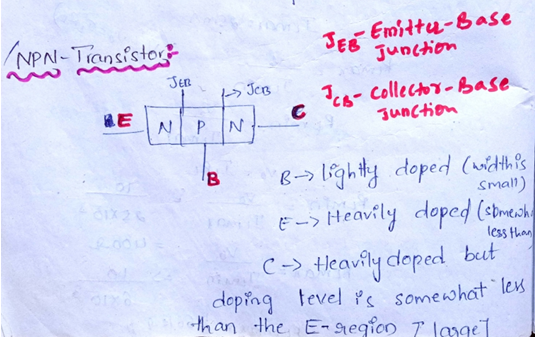 NPN-Transistor:-
JEB- Emitter-Base
Junction
JCB- Collector-Base
Junction
JEB
JCB
E N P N C
B
B→ lightly doped (width is
small)
E→ Heavily doped (somewh
less than
C→ Heavily doped but
doping level is somewhat less
than the E-region [large]